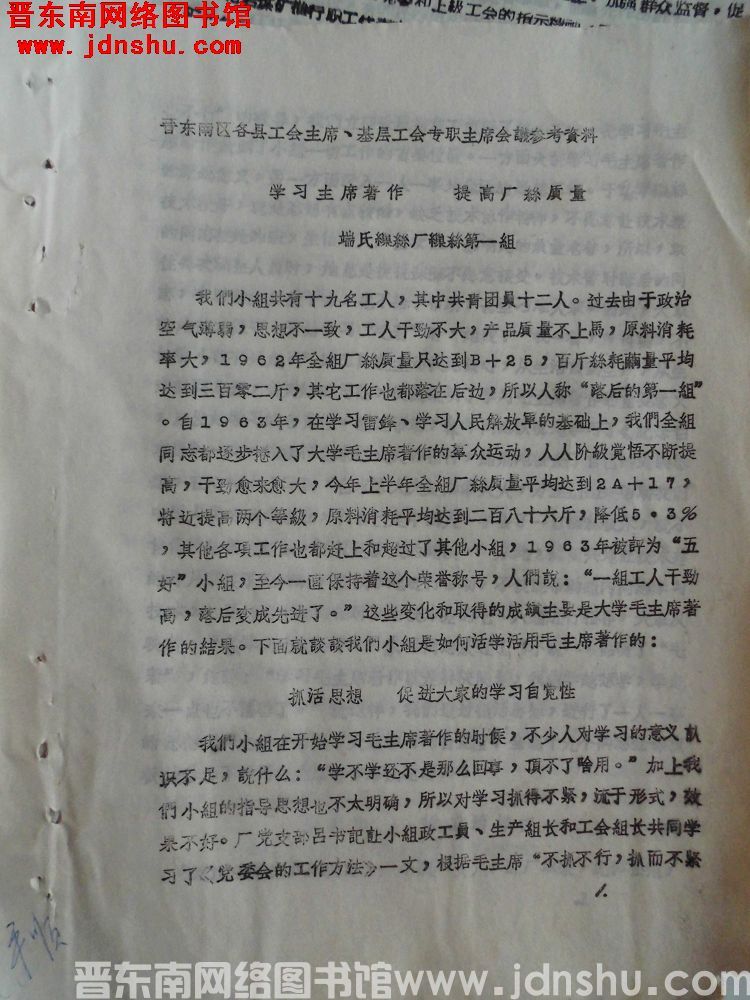 和上级工会的指示精神
加强群众监督，促
晋东南网络图书馆
www.jdnshu.com
晋东南区各县工会主席、基层工会专职主席会議参考資料
学习主席著作　　提高厂絲质量
端氏繰絲厂繰絲第一組
我們小組共有十九名工人，其中共青团員十二人。过去由于政治
空气薄弱，思想不一致，工人干劲不大，产品质量不上馬，原料消耗
率大，1962年全組厂絲质量只达到B＋25，百斤絲耗繭量平均
达到三百零二斤，其它工作也都落在后边，所以人称“落后的第一組”
。自1963年，在学习雷鋒、学习人民解放軍的基础上，我們全組
同志都逐步捲入了大学毛主席著作的羣众运动，人人阶級覚悟不断提
高，干劲愈来愈大，今年上半年全組厂絲质量平均达到2A＋17，
将近提高两个等級，原料消耗平均达到二百八十六斤，降低5·3%
，其他各項工作也都赶上和超过了其他小組，1963年被評为“五
好”小組，至今一直保持着这个荣誉称号，人們說：“一組工人干劲
高，落后变成先进了。”这些变化和取得的成績主要是大学毛主席著
作的結果。下面就談談我們小組是如何活学活用毛主席著作的：
抓活思想　　促进大家的学习自覚性
我們小組在开始学习毛主席著作的时候，不少人对学习的意义認
识不足，說什么：“学不学还不是那么回事，頂不了啥用。”加上我
們小組的指导思想也不太明确，所以对学习抓得不紧，流于形式，效
果不好。厂党支部吕书記让小組政工員、生产組长和工会組长共同学
习了《党委会的工作方法》一文，根据毛主席“不抓不行，抓而不紧
1.
晋东南网络图书馆www.jdnshu.com